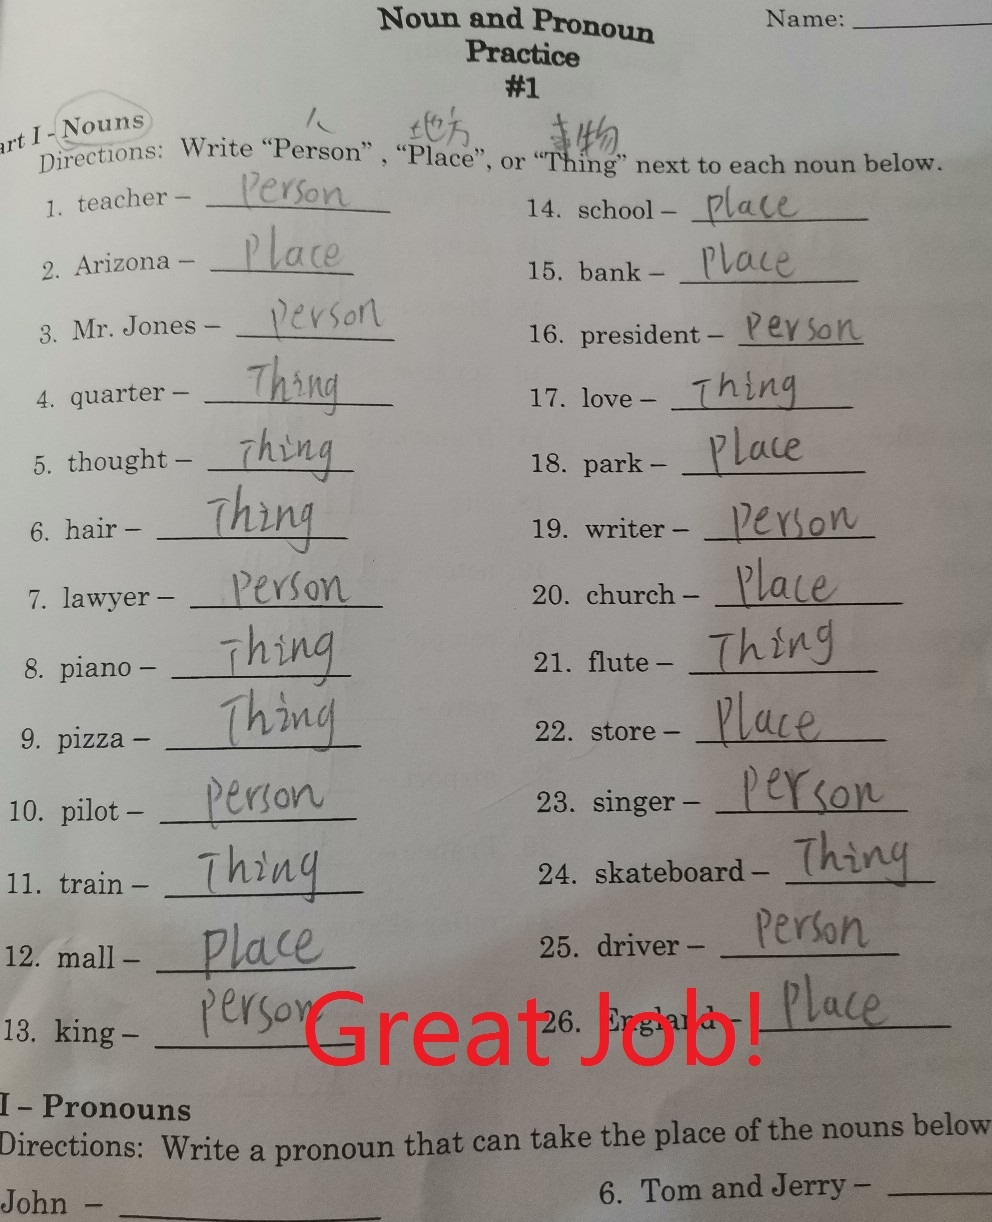 Noun and Pronoun
Practice
#1
Name:
art I - Nouns
人 地方 事物
Directions: Write “Person” , “Place”, or “Thing” next to each noun below.
1. teacher – Person
2. Arizona – Place
3. Mr. Jones – Person
4. quarter – Thing
5. thought – Thing
6. hair – Thing
7. lawyer – Person
8. piano – Thing
9. pizza – Thing
10. pilot – Person
11. train – Thing
12. mall – Place
13. king – Person
14. school – Place
15. bank – Place
16. president – Person
17. love – Thing
18. park – Place
19. writer – Person
20. church – Place
21. flute – Thing
22. store – Place
23. singer – Person
24. skateboard – Thing
25. driver – Person
26. England – Place
Great Job!
I – Pronouns
Directions: Write a pronoun that can take the place of the nouns below
John –
6. Tom and Jerry –